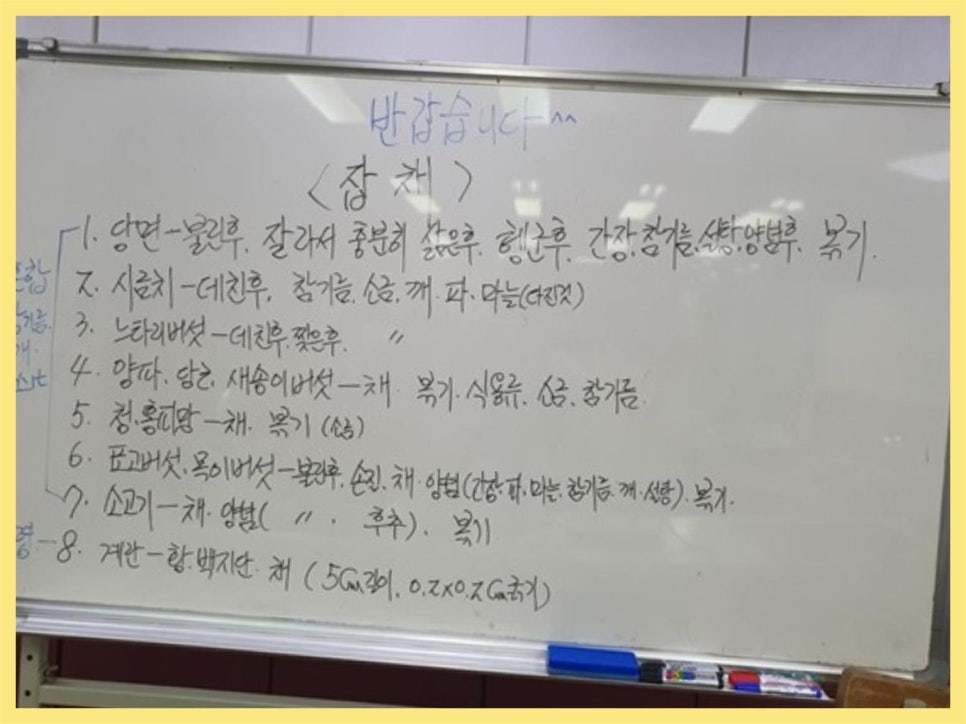 반갑습니다^^
<잡채>
1. 당면-불린후, 잘라서 충분히 삶은후, 헹군후, 간장,참기름,설탕,양념후, 볶기.
2. 시금치-데친후, 참기름, 소금, 깨. 파. 마늘(다진것)
3. 느타리버섯-데친후,찢은후, 〃
4. 양파, 당근, 새송이버섯-채. 볶기. 식용류, 소금, 참기름.
5. 청.홍피망-채. 볶기 (소금)
6. 표고버섯, 목이버섯-불린후, 손질, 채 양념(간장.파.마늘.참기름.깨.설탕). 볶기.
7. 소고기-채. 양념( 〃 . 후추). 볶기
8. 계란-황.백지단. 채 (5cm길이, 0.2x0.2cm굵기)